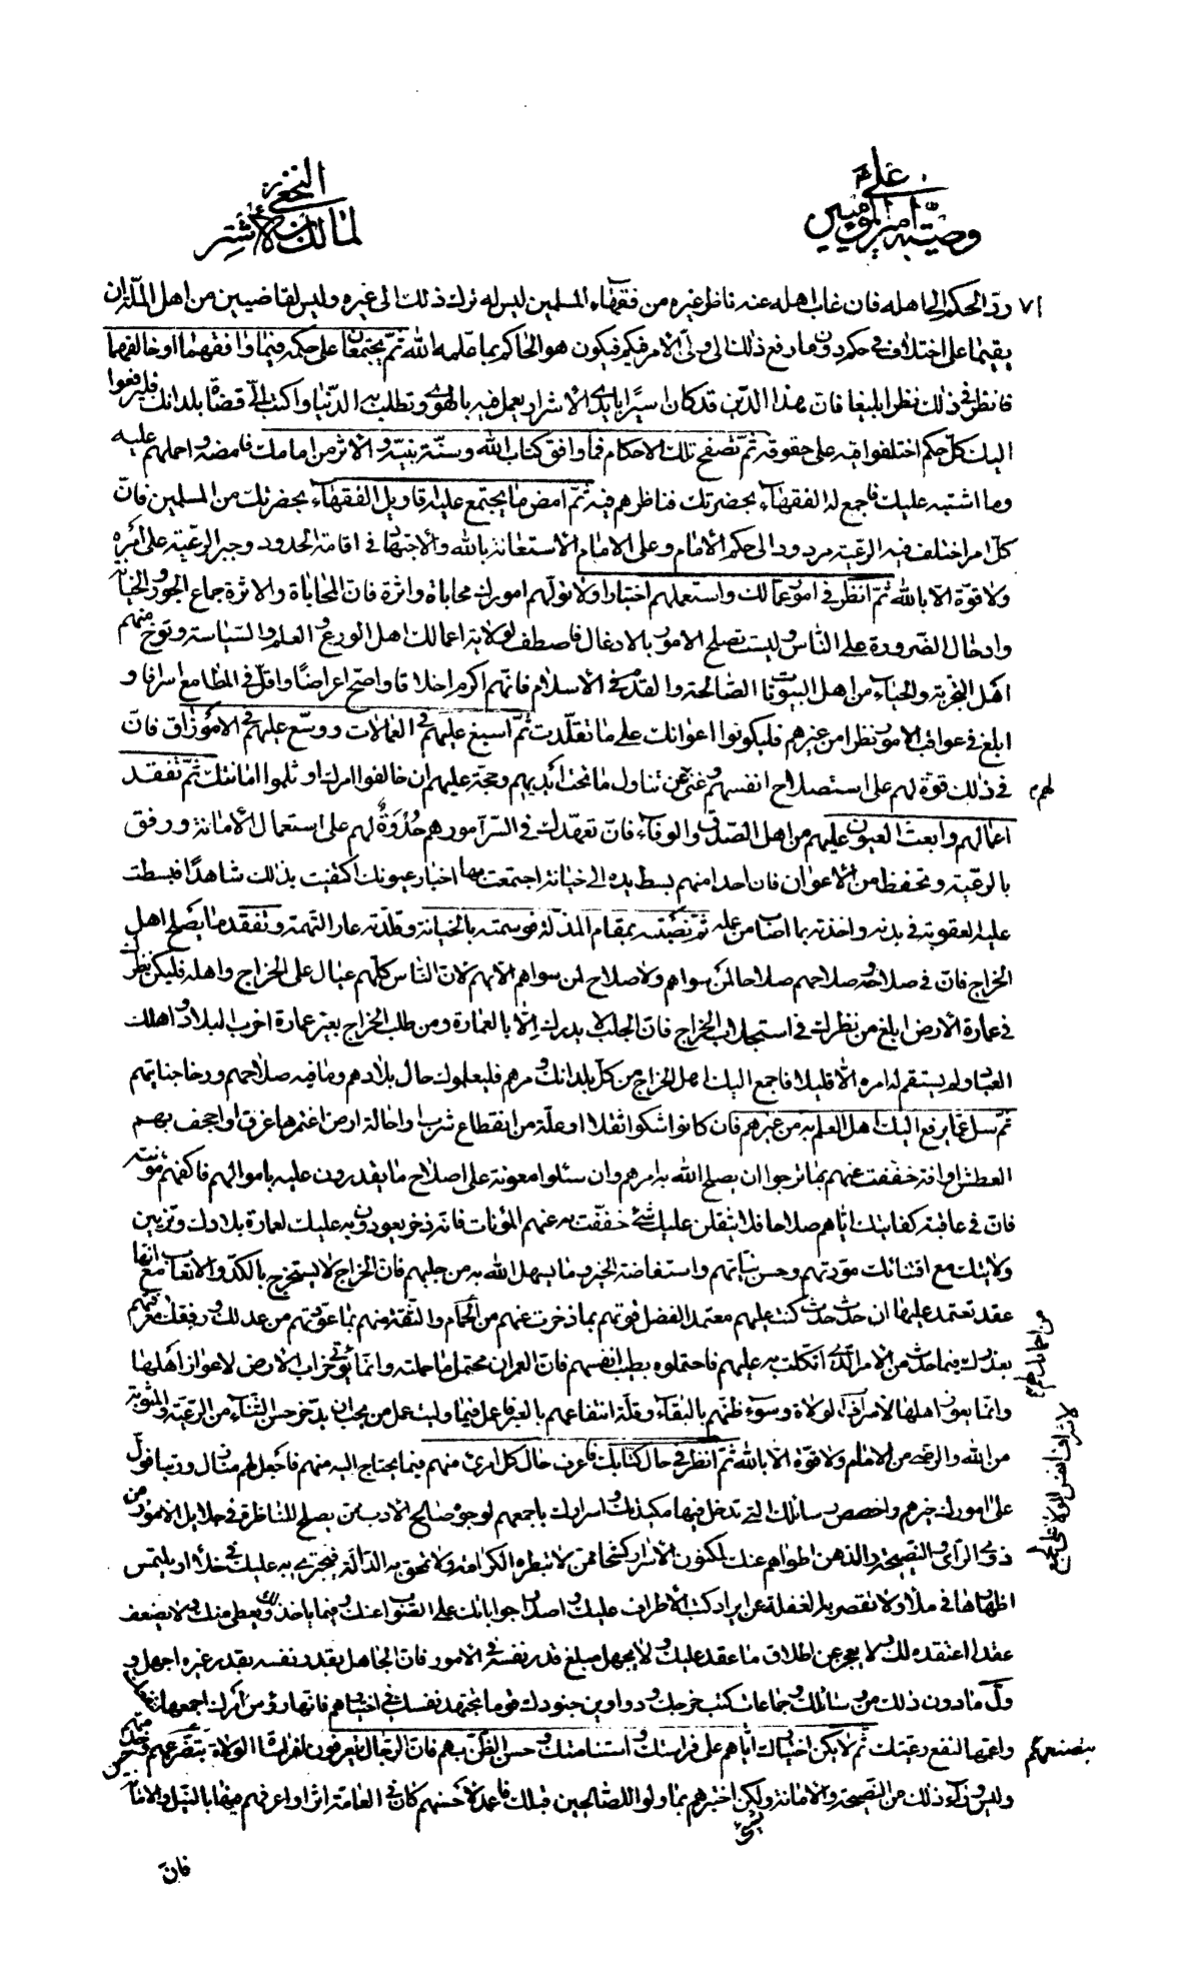 وصيّة امير المؤمنين علىّ ع
لمالك بن الأشتر النخعى
٧١
ردّ الحكم الى اهله فان غاب اهله عنه ناظر غيره من فقهاء المسلمين ليس له ترك ذلك الى غيره وليس لقاضيين من اهل الملّة ان
يقيما على اختلاف فى حكم دون ما رفع ذلك الى ولىّ الأمر فيكم فيكون هو الحاكم بما علّمه الله ثمّ يجتمعان على حكمه فيما وافقهما او خالفهما
فانظر فى ذلك نظرا بليغا فانّ هذا الدّين قد كان اسيرًا بايدى الأشرار يعمل فيه بالهوى وتطلب به الدّنيا واكتب الى قضاة بلدانك فليرفعوا
اليك كلّ حكم اختلفوا فيه على حقوقه ثمّ تصفّح تلك الاحكام فما وافق كتاب الله وسنّة نبيّه والاثر من امامك فامضه واحملهم عليه
وما اشتبه عليك فاجمع له الفقهاء بحضرتك فناظرهم فيه ثمّ امض ما يجتمع عليه اقاويل الفقهاء بحضرتك من المسلمين فانّ
كلّ امر اختلف فيه الرّعيّة مردود الى حكم الأمام وعلى الامام الاستعانة بالله والأجتهاد فى اقامة الحدود وجبر الرّعيّة على امره
ولا قوّة الّا بالله ثمّ انظر فى امور عمّالك واستعملهم اختبارا ولا تولّهم امورك محاباة واثرة فانّ المحاباة والاثرة جماع الجور والخيانة
وادخال الضّرورة على النّاس وليست تصلح الامور بالادغال فاصطف لولاية اعمالك اهل الورع والعلم والسّياسة وتوخّ منهم
اهل التّجربة والحياء من اهل البيوتات الصّالحة والقدم فى الأسلام فانّهم اكرم اخلاقا واصحّ اعراضًا واقلّ فى المطامع اسرافا و
ابلغ فى عواقب الامور نظرا من غيرهم فليكونوا اعوانك على ما تقلّدت ثمّ اسبغ عليهم فى العمالات ووسّع عليهم فى الارزاق فانّ
فى ذلك قوّة لهم على استصلاح انفسهم وغنى عن تناول ما تحت ايديهم وحجّة عليهم ان خالفوا امرك او ثلموا امانتك ثمّ تفقّد
لهم
اعمالهم وابعث العيون عليهم من اهل الصّدق والوفاء فانّ تعهّدك فى السّرّ امورهم حُدْوَةٌ لهم على استعمال الأمانة ورفق
بالرعيّة وتحفّظ من الأعوان فان احد منهم بسط يده الى خيانة اجتمعت بها اخبار عيونك اكتفيت بذلك شاهدًا فبسطت
عليه العقوبة فى بدنه واخذته بما اصاب من عمله ثمّ نصبته بمقام المذلّة فوسمته بالخيانة وقلّدته عار التّهمة وتفقّد ما يصلح اهل
الخراج فانّ فى صلاحه وصلاحهم صلاحا لمن سواهم ولا صلاح لمن سواهم الّا بهم لانّ النّاس كلّهم عيال على الخراج واهله فليكن نظرك
فى عمارة الأرض ابلغ من نظرك فى استجلاب الخراج فانّ الجلب لا يدرك الّا بالعمارة ومن طلب الخراج بغير عمارة اخرب البلاد واهلك
العباد ولم يستقم له امره الّا قليلا فاجمع اليك اهل الخراج من كلّ بلدانك ومرهم فليعلموك حال بلادهم وما فيه صلاحهم ورخاء جبايتهم
ثمّ سل عمّا يرفع اليك اهل العلم به من غيرهم فان كانوا شكوا ثقلا او علّة من انقطاع شرب او احالة ارض اغتمرها غرق او اجحف بهم
العطش او افة خفّفت عنهم بما ترجو ان يصلح الله به امرهم وان سئلوا معونة على اصلاح ما يقدرون عليه باموالهم فاكفهم مؤنته
فانّ فى عاقبة كفايتك ايّاهم صلاحا فلا يثقلن عليك شئ خفّفت به عنهم المؤنات فانّه ذخر يعودون به عليك لعمارة بلادك وتزيين
ولايتك مع اقتنائك مودّتهم وحسن نيّاتهم واستفاضة الخير وما يسهل الله به من جلبهم فانّ الخراج لا يستخرج بالكدّ والاتعاب مع انّها
عقد تعتمد عليها ان حدث حدث كنت عليهم معتمدا لفضل قوّتهم بما ذخرت عنهم من الجمام والثّقة منهم بما عوّدتهم من عدلك ورفقك ومعرفتهم
بعذرك فيما حدث من الأمر الّذى اتّكلت به عليهم فاحتملوه بطيب انفسهم فانّ العمران محتمل ما حملته وانّما يؤتى خراب الأرض لاعواز اهلها
وانّما يعوز اهلها لاسراف الولاة وسوء ظنّهم بالبقاء وقلّة انتفاعهم بالعبر فاعمل فيما وليت عمل من يحبّ ان يدّخر حسن الثّناء من الرّعيّة والمثوبة
من الله والرّضا من الامام ولا قوّة الّا بالله ثمّ انظر فى حال كتّابك فاعرف حال كل امرئ منهم فيما يحتاج اليه منهم فاجعل لهم منازل ورتبا فولّ
على امورك خيرهم واخصص رسائلك الّتى تدخل فيها مكيدتك واسرارك باجمعهم لوجوه صالح الأدب ممّن يصلح للمناظرة فى جلايل الامور من
ذوى الرّأى والنّصيحة والذّهن اطواهم عنك لمكنون الاسرار كشحا ممّن لا تبطره الكرامة ولا تمحق به الدّالّة فيجترئ به عليك فى خلاء او يلتمس
اظهارها فى ملاء ولا تقصر به الغفلة عن ايراد كتب الأطراف عليك واصدار جواباتك على الصّواب عنك وفيما ياخذ لك ويعطى منك ولا يضعف
عقدا اعتقده لك ولا يعجز عن اطلاق ما عقد عليك ولا يجهل مبلغ قدر نفسه فى الأمور فانّ الجاهل بقدر نفسه بقدر غيره اجهل و
ولّ ما دون ذلك من رسائلك وجماعات كتب خرجك ودواوين جنودك قوما تجتهد نفسك فى اختيارهم فانّها رؤس امرك اجمعها
واعمّها لنفع رعيّتك ثمّ لا يكن اختيارك ايّاهم على فراستك واستنامتك وحسن الظّن بهم فانّ الرّجال يعرفون فراسات الولاة بتضرّعهم وخدمتهم
بتصنعهم
وليس وراء ذلك من النّصيحة والامانة ولكن اختبرهم بما ولوا للصّالحين قبلك فاعمد لاحسنهم كان فى العامّة اثرا واعرفهم فيها بالنّبل والامانة
فانّ